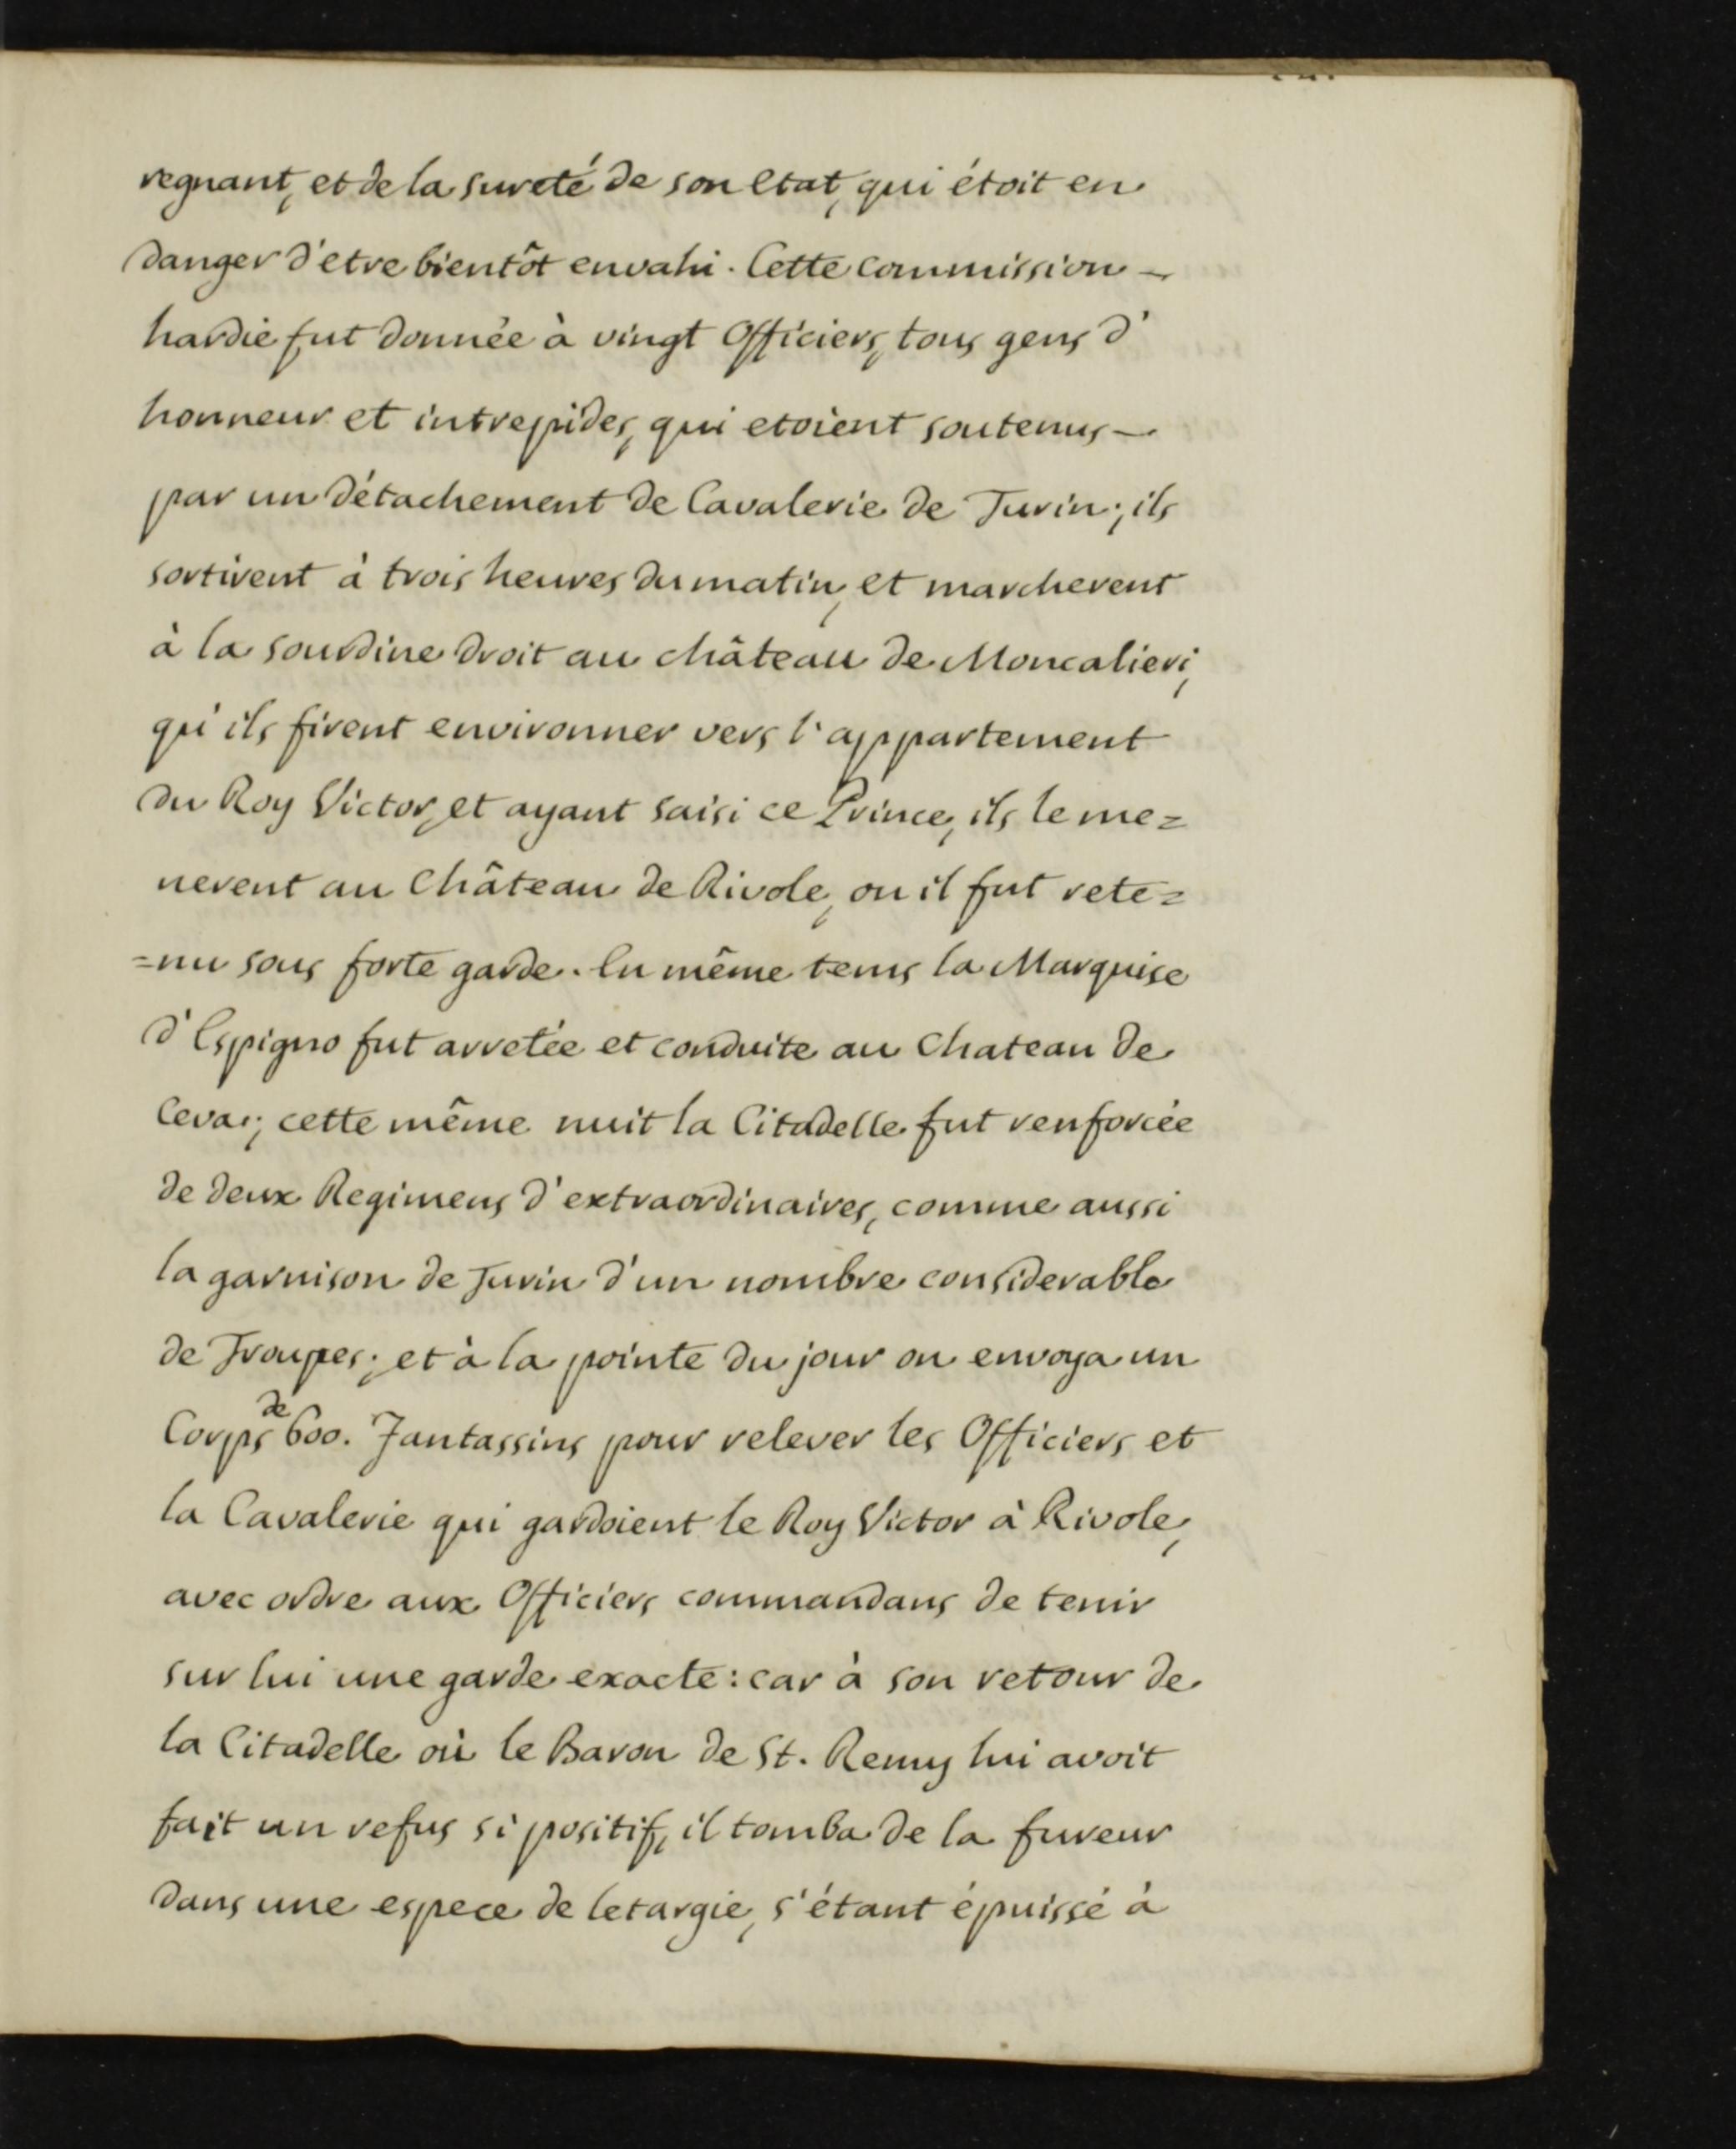 regnant, et de la sureté de son Etat, qui étoit en
danger d'etre bientôt envahi. Cette commission —
hardie fut donnée à vingt Officiers, tous gens d'
honneur et intrepides, qui etoient soutenus —
par un détachement de Cavalerie de Turin; ils
sortirent à trois heures du matin, et marcherent
à la sourdine droit au château de Moncalieri,
qu'ils firent environner vers l'appartement
du Roy Victor, et ayant saisi ce Prince, ils le me=
nerent au Château de Rivole, ou il fut rete=
=nu sous forte garde. En même tems la Marquise
d'Espigno fut arretée et conduite au Chateau de
Ceva; cette même nuit la Citadelle fut renforcée
de deux Regimens d'extraordinaires, comme aussi
la garnison de Turin d'un nombre considerable
de Troupes; et à la pointe du jour on envoya un
Corps de 600. Fantassins pour relever les Officiers et
la Cavalerie qui gardoient le Roy Victor à Rivole,
avec ordre aux Officiers commandans de tenir
sur lui une garde exacte: car à son retour de
la Citadelle où le Baron de St. Remy lui avoit
fait un refus si positif, il tomba de la fureur
dans une espece de letargie, s'étant épuissé à